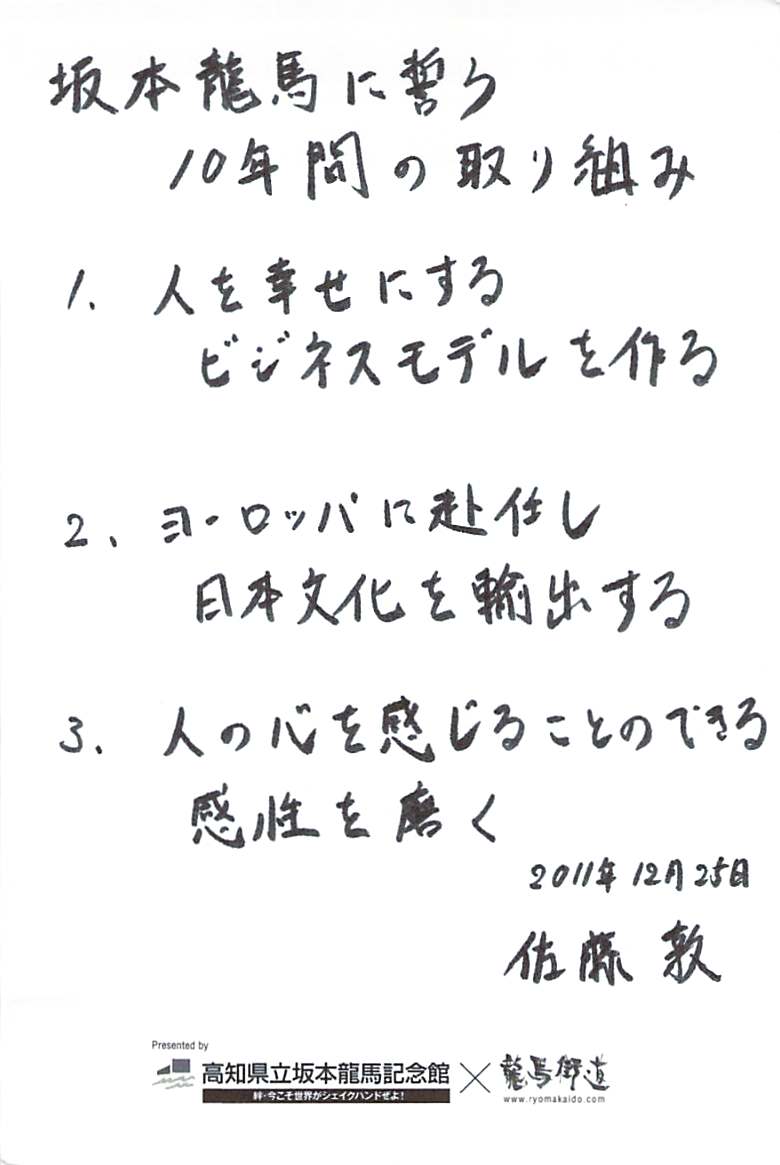 坂本龍馬に誓う
10年間の取り組み
1. 人を幸せにする
ビジネスモデルを作る
2. ヨーロッパに赴任し
日本文化を輸出する
3. 人の心を感じることのできる
感性を磨く
2011年12月25日
佐藤 敦
Presented by
高知県立坂本龍馬記念館 × 龍馬街道
絆・今こそ世界がシェイクハンドぜよ!
www.ryomakaido.com